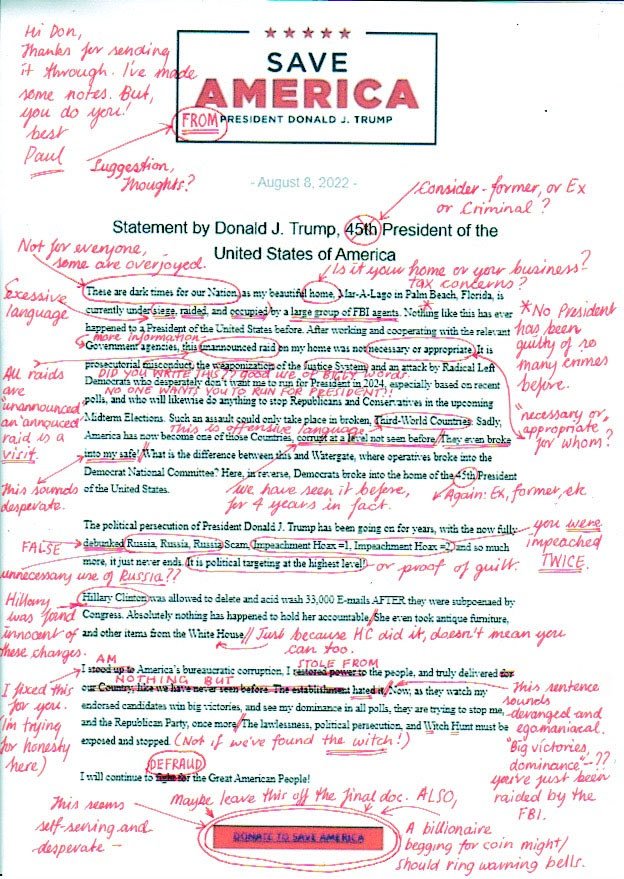 Hi Don,
Thanks for sending
it through. I've made
some notes. But,
you do you!
best
Paul
SAVE
AMERICA
FROM PRESIDENT DONALD J. TRUMP
Suggestion,
Thoughts?
- August 8, 2022 -
Consider - former, or Ex
or Criminal?
Statement by Donald J. Trump, 45th President of the
United States of America
Not for everyone,
some are overjoyed.
Is it your home or your business -
tax concerns?
These are dark times for our Nation, as my beautiful home, Mar-A-Lago in Palm Beach, Florida, is
currently under siege, raided, and occupied by a large group of FBI agents. Nothing like this has ever
happened to a President of the United States before. After working and cooperating with the relevant
more information
Government agencies, this unannounced raid on my home was not necessary or appropriate. It is
prosecutorial misconduct, the weaponization of the Justice System, and an attack by Radical Left
DID YOU WRITE THIS?? GOOD USE OF BIGLY WORDS.
Democrats who desperately don't want me to run for President in 2024, especially based on recent
NO ONE WANTS YOU TO RUN FOR PRESIDENT!!
polls, and who will likewise do anything to stop Republicans and Conservatives in the upcoming
Midterm Elections. Such an assault could only take place in broken, Third-World Countries. Sadly,
This is offensive language
America has now become one of those Countries, corrupt at a level not seen before. They even broke
into my safe! What is the difference between this and Watergate, where operatives broke into the
Democrat National Committee? Here, in reverse, Democrats broke into the home of the 45th President
of the United States.
Exessive
language
All raids
are
"unannounced"
an "annouced"
raid is a
visit.
This sounds
desperate.
* No President
has been
guilty of so
many crimes
before.
"necessary or
appropriate"
for whom?
We have seen it before,
for 4 years in fact.
Again: Ex, former, etc
The political persecution of President Donald J. Trump has been going on for years, with the now fully
debunked Russia, Russia, Russia Scam, Impeachment Hoax #1, Impeachment Hoax #2, and so much
more, it just never ends. It is political targeting at the highest level!
- or proof of guilt.
FALSE
unnecessary use of Russia??
you were
impeached
TWICE.
Hillary Clinton was allowed to delete and acid wash 33,000 E-mails AFTER they were subpoenaed by
Congress. Absolutely nothing has happened to hold her accountable. She even took antique furniture,
and other items from the White House.
Just because HC did it, doesn't mean you
can too.
Hillary
was found
innocent of
these charges.
AM
STOLE FROM
I stood up to America's bureaucratic corruption, I restored power to the people, and truly delivered for
NOTHING BUT
our Country, like we have never seen before. The establishment hated it. Now, as they watch my
endorsed candidates win big victories, and see my dominance in all polls, they are trying to stop me,
and the Republican Party, once more. The lawlessness, political persecution, and Witch Hunt must be
exposed and stopped.
(Not if we've found the witch!)
I fixed this
for you.
(I'm trying
for honesty
here)
This sentence
sounds
deranged and
egomaniacal.
"Big victories,
dominance" --??
you've just been
raided by the
FBI.
DEFRAUD
I will continue to fight for the Great American People!
This seems
self-serving and
desperate -
Maybe leave this off the final doc. ALSO,
DONATE TO SAVE AMERICA
A billionaire
begging for coin might/
should ring warning bells.